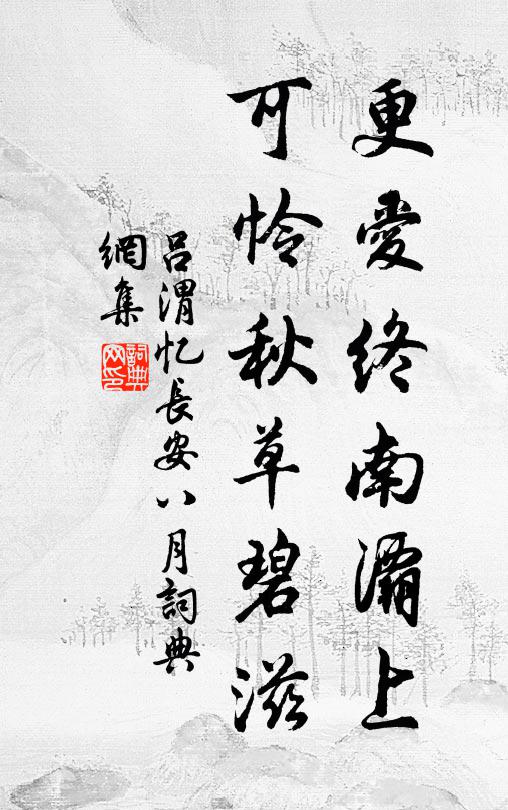 更愛終南灞上
可怜秋草碧滋
吕渭忆長安八月詞典
網集
詞典
网印